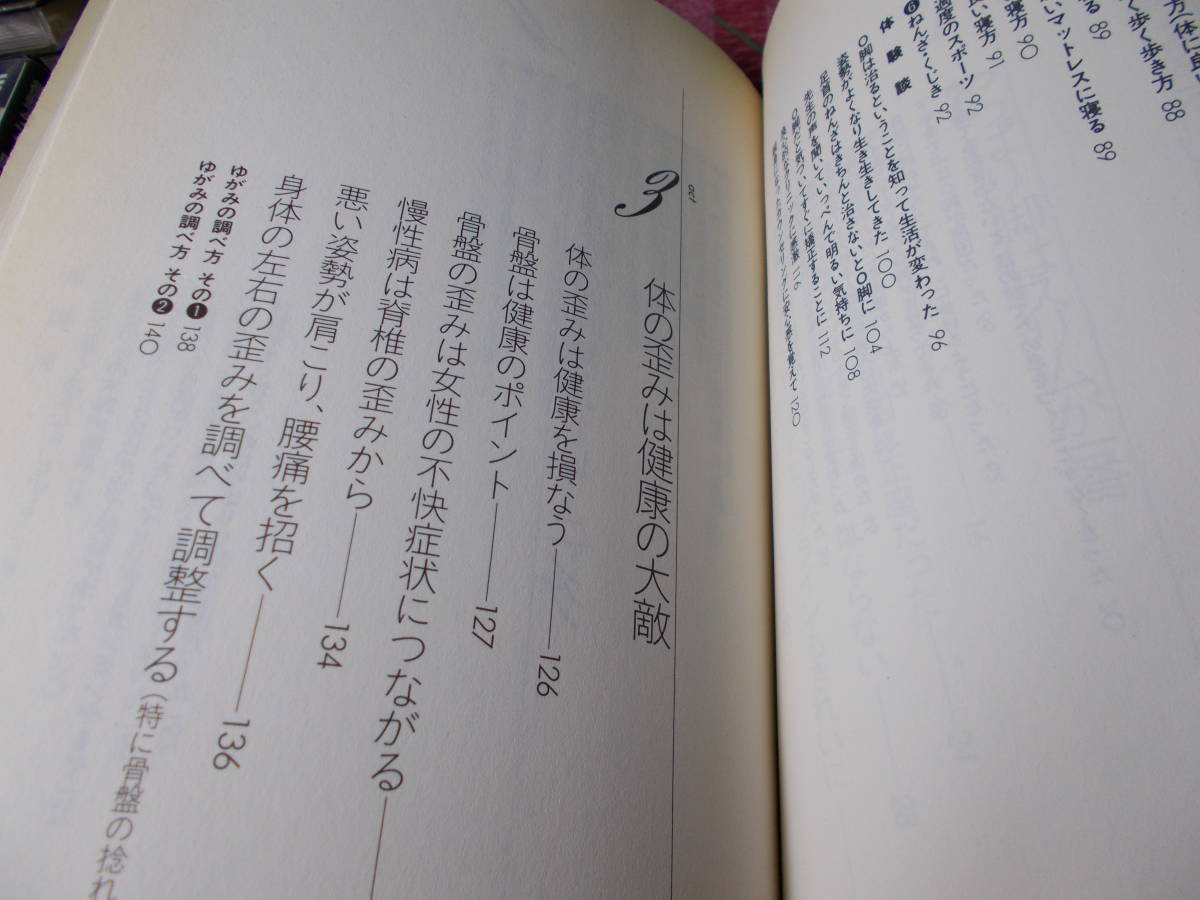 方(体に良
く歩く歩き方 88
いマットレスに寝る 89
る 89
寝方 90
良い寝方 91
過度のスポーツ 92
❻ねんざ・くじき 92
体験談
O脚は治るということを知って生活が変わった 96
姿勢がよくなり生き生きしてきた 100
足首のねんざはきちんと治さないとO脚に 104
先生の声を聞いていっぺんで明るい気持ちに 108
O脚だと気づいてすぐに矯正することに 112
116
120
act
3
体の歪みは健康の大敵
体の歪みは健康を損なう——126
骨盤は健康のポイント——127
骨盤の歪みは女性の不快症状につながる——
慢性病は脊椎の歪みから——134
悪い姿勢が肩こり、腰痛を招く——136
身体の左右の歪みを調べて調整する(特に骨盤の捻れ
ゆがみの調べ方 その❶ 138
ゆがみの調べ方 その❷ 140